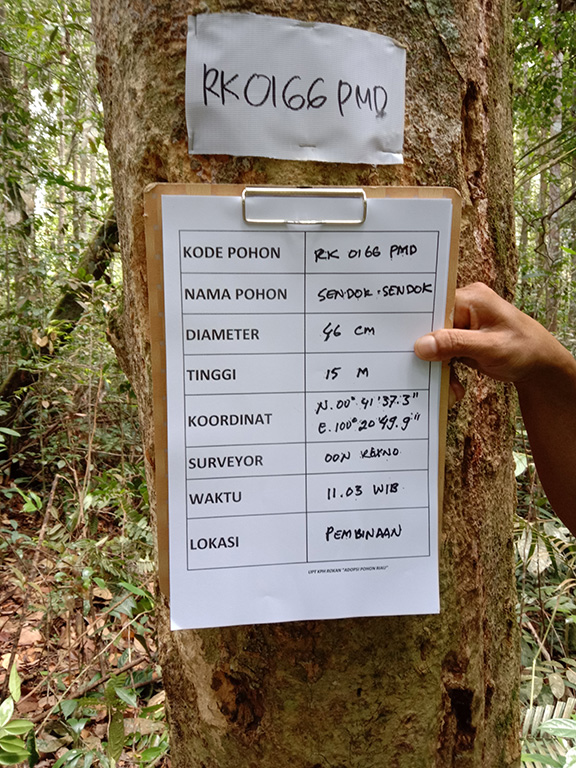 RK0166 PMD
KODE POHON RK 0166 PMD
NAMA POHON SENDOK-SENDOK
DIAMETER 46 cm
TINGGI 15 M
KOORDINAT N.00° 41'37.3"
E.100° 20'49.9"
SURVEYOR OON
WAKTU 11.03 WIB
LOKASI PEMBINAAN
UPT KPH ROKAN "ADOPSI POHON RIAU"